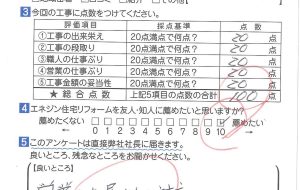 3 今回の工事に点数をつけてください。
評価項目 採点基準 点数
①工事の出来栄え 20点満点で何点? 20 点
②工事の段取り 20点満点で何点? 20 点
③職人の仕事ぶり 20点満点で何点? 20 点
④営業の仕事ぶり 20点満点で何点? 20 点
⑤工事金額の妥当性 20点満点で何点? 20 点
★総合点数 上記5項目の点数の合計 100 点
4 エネジン住宅リフォームを友人・知人に薦めたいと思いますか?
薦めたくない 薦めたい
0 1 2 3 4 5 6 7 8 9 10
5 このアンケートは直接弊社社長に届きます。
良いところ、残念なところをお聞かせください。
【良いところ】